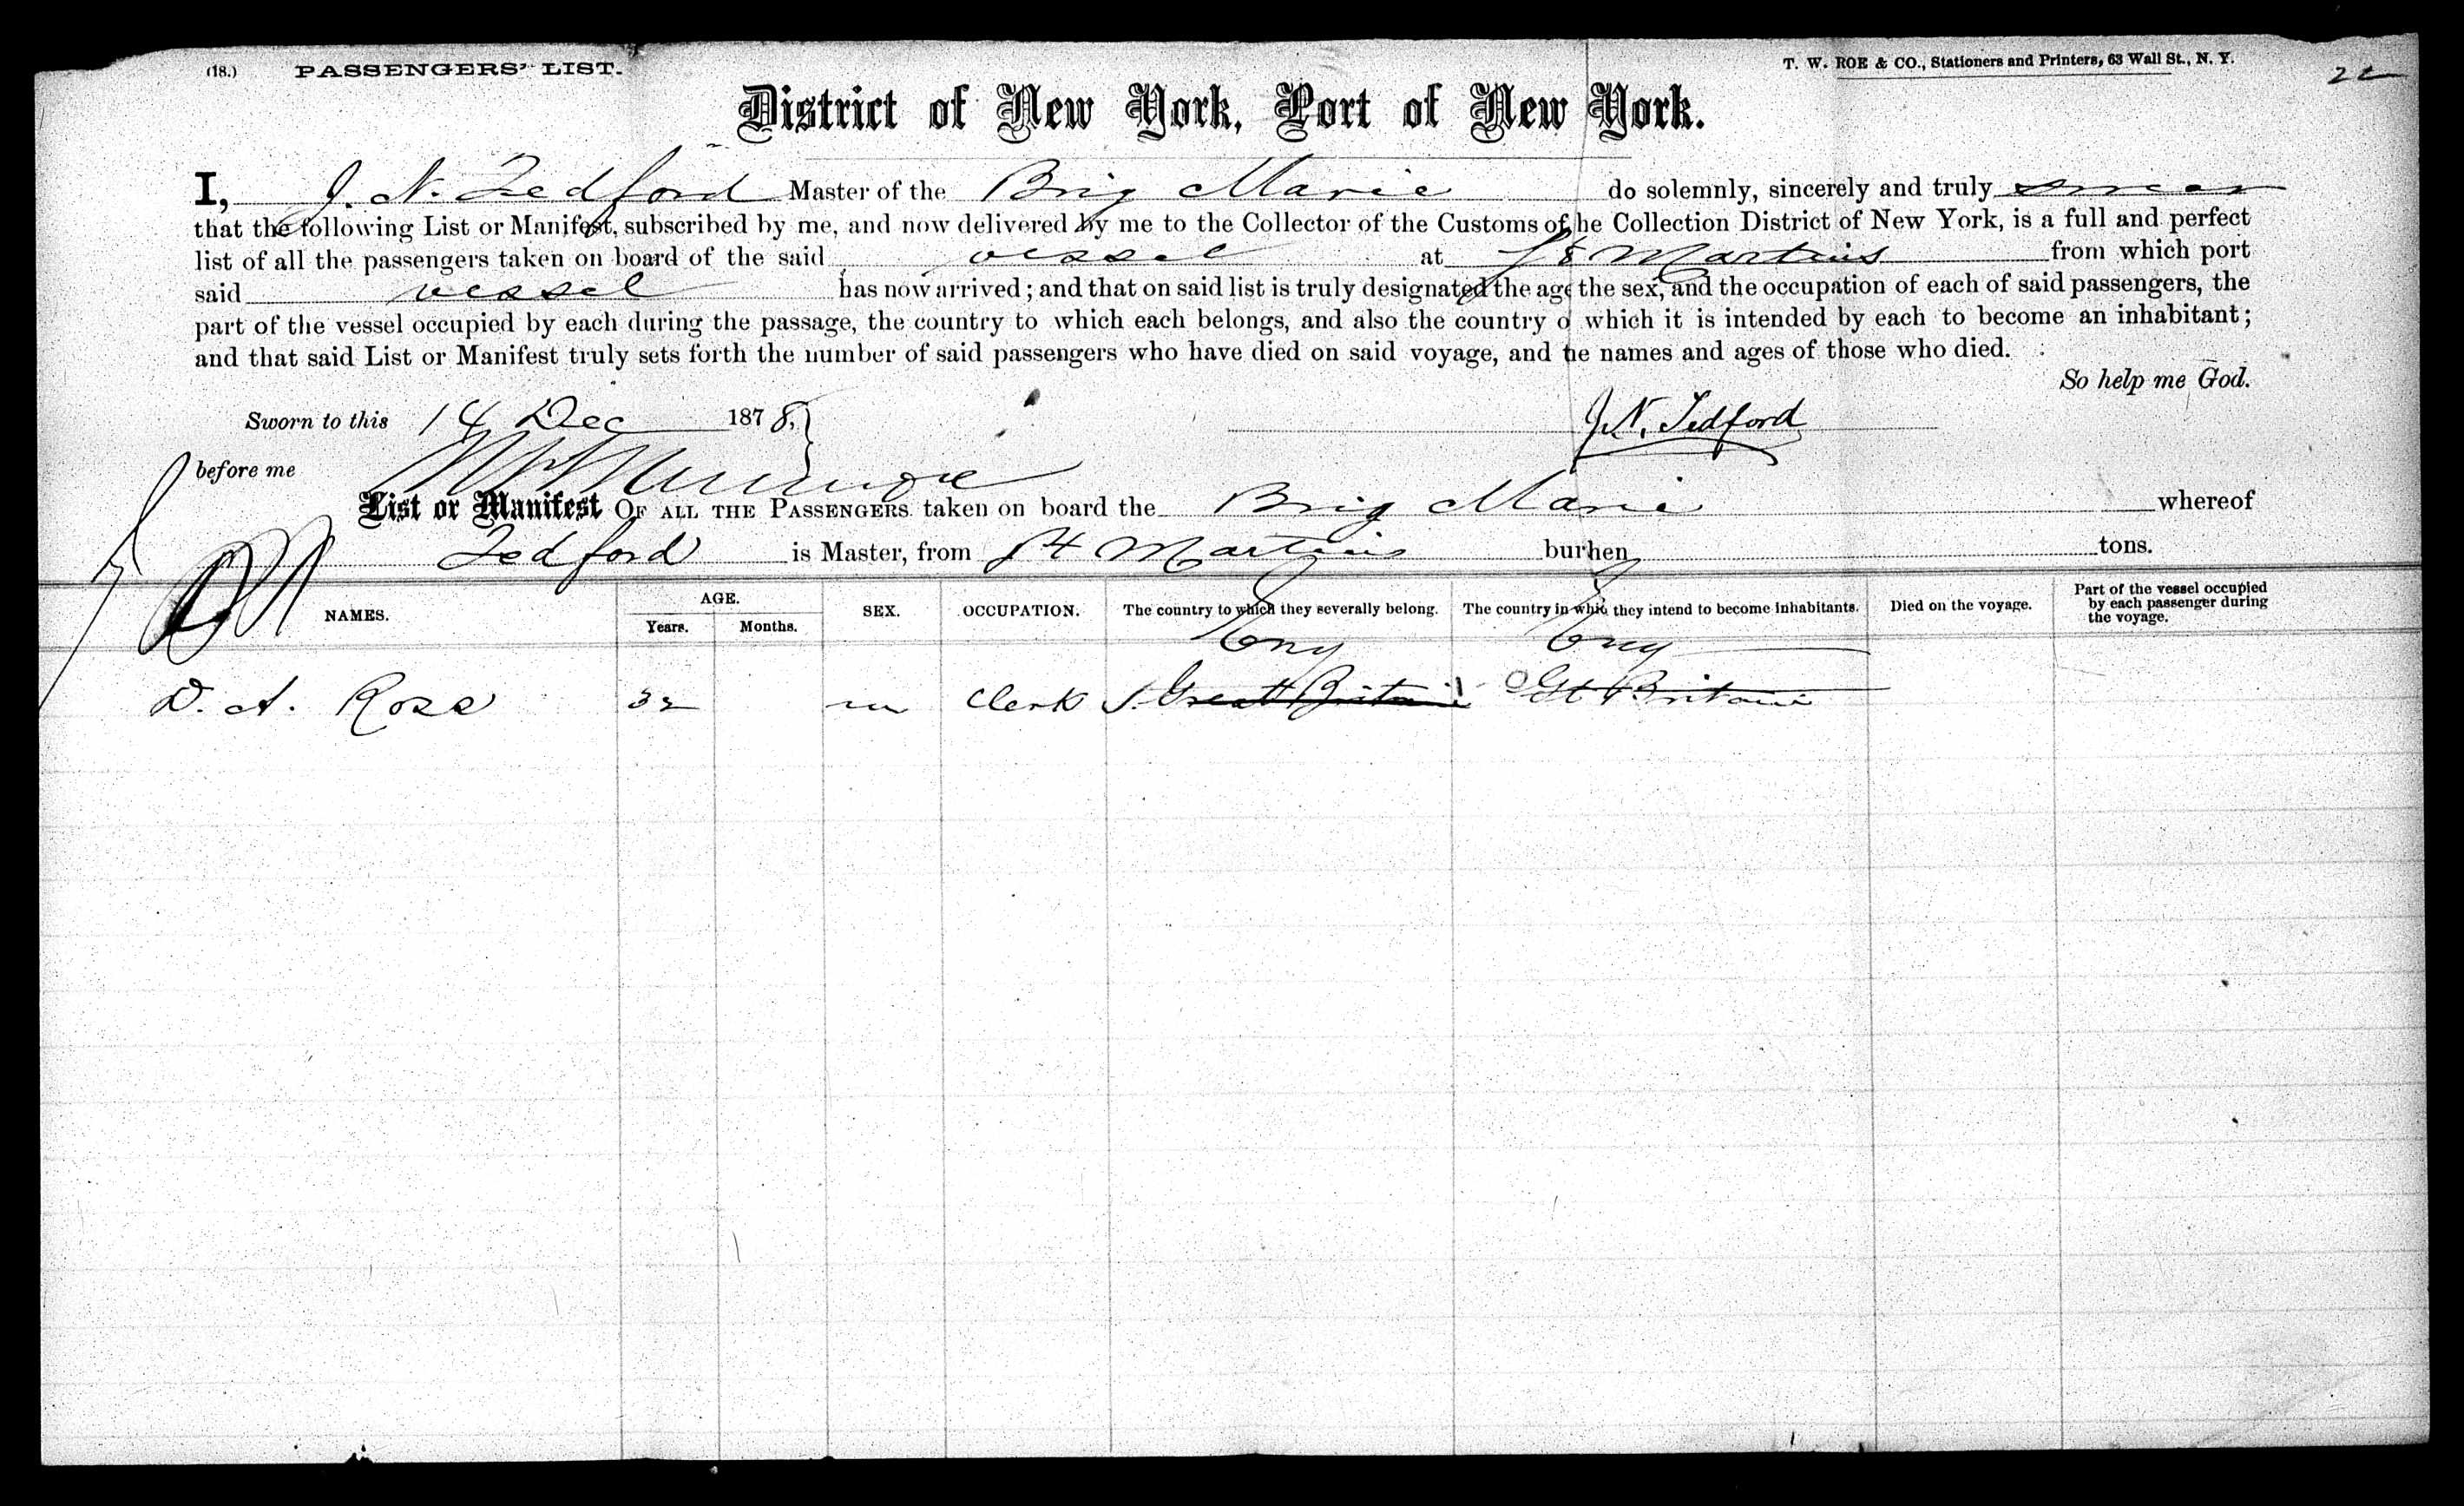 (18.) PASSENGERS' LIST. T. W. ROE & CO., Stationers and Printers, 63 Wall St., N. Y.
District of New York, Port of New York.
I, J. N. Tedford Master of the Brig Marie do solemnly, sincerely and truly swear
that the following List or Manifest, subscribed by me, and now delivered by me to the Collector of the Customs of he Collection District of New York, is a full and perfect
list of all the passengers taken on board of the said vessel at St Martins from which port
said vessel has now arrived; and that on said list is truly designated the age the sex, and the occupation of each of said passengers, the
part of the vessel occupied by each during the passage, the country to which each belongs, and also the country o which it is intended by each to become an inhabitant;
and that said List or Manifest truly sets forth the number of said passengers who have died on said voyage, and he names and ages of those who died.
So help me God.
Sworn to this 14 Dec 1878. J. N. Tedford
before me
List or Manifest OF ALL THE PASSENGERS taken on board the Brig Marie whereof
Tedford is Master, from St Martins burhen tons.
NAMES. AGE. Years. Months. SEX. OCCUPATION. The country to which they severally belong. The country in which they intend to become inhabitants. Died on the voyage. Part of the vessel occupied by each passenger during the voyage.
Eng Eng
D. A. Ross 32 m Clerk Great Britain Gt Britain